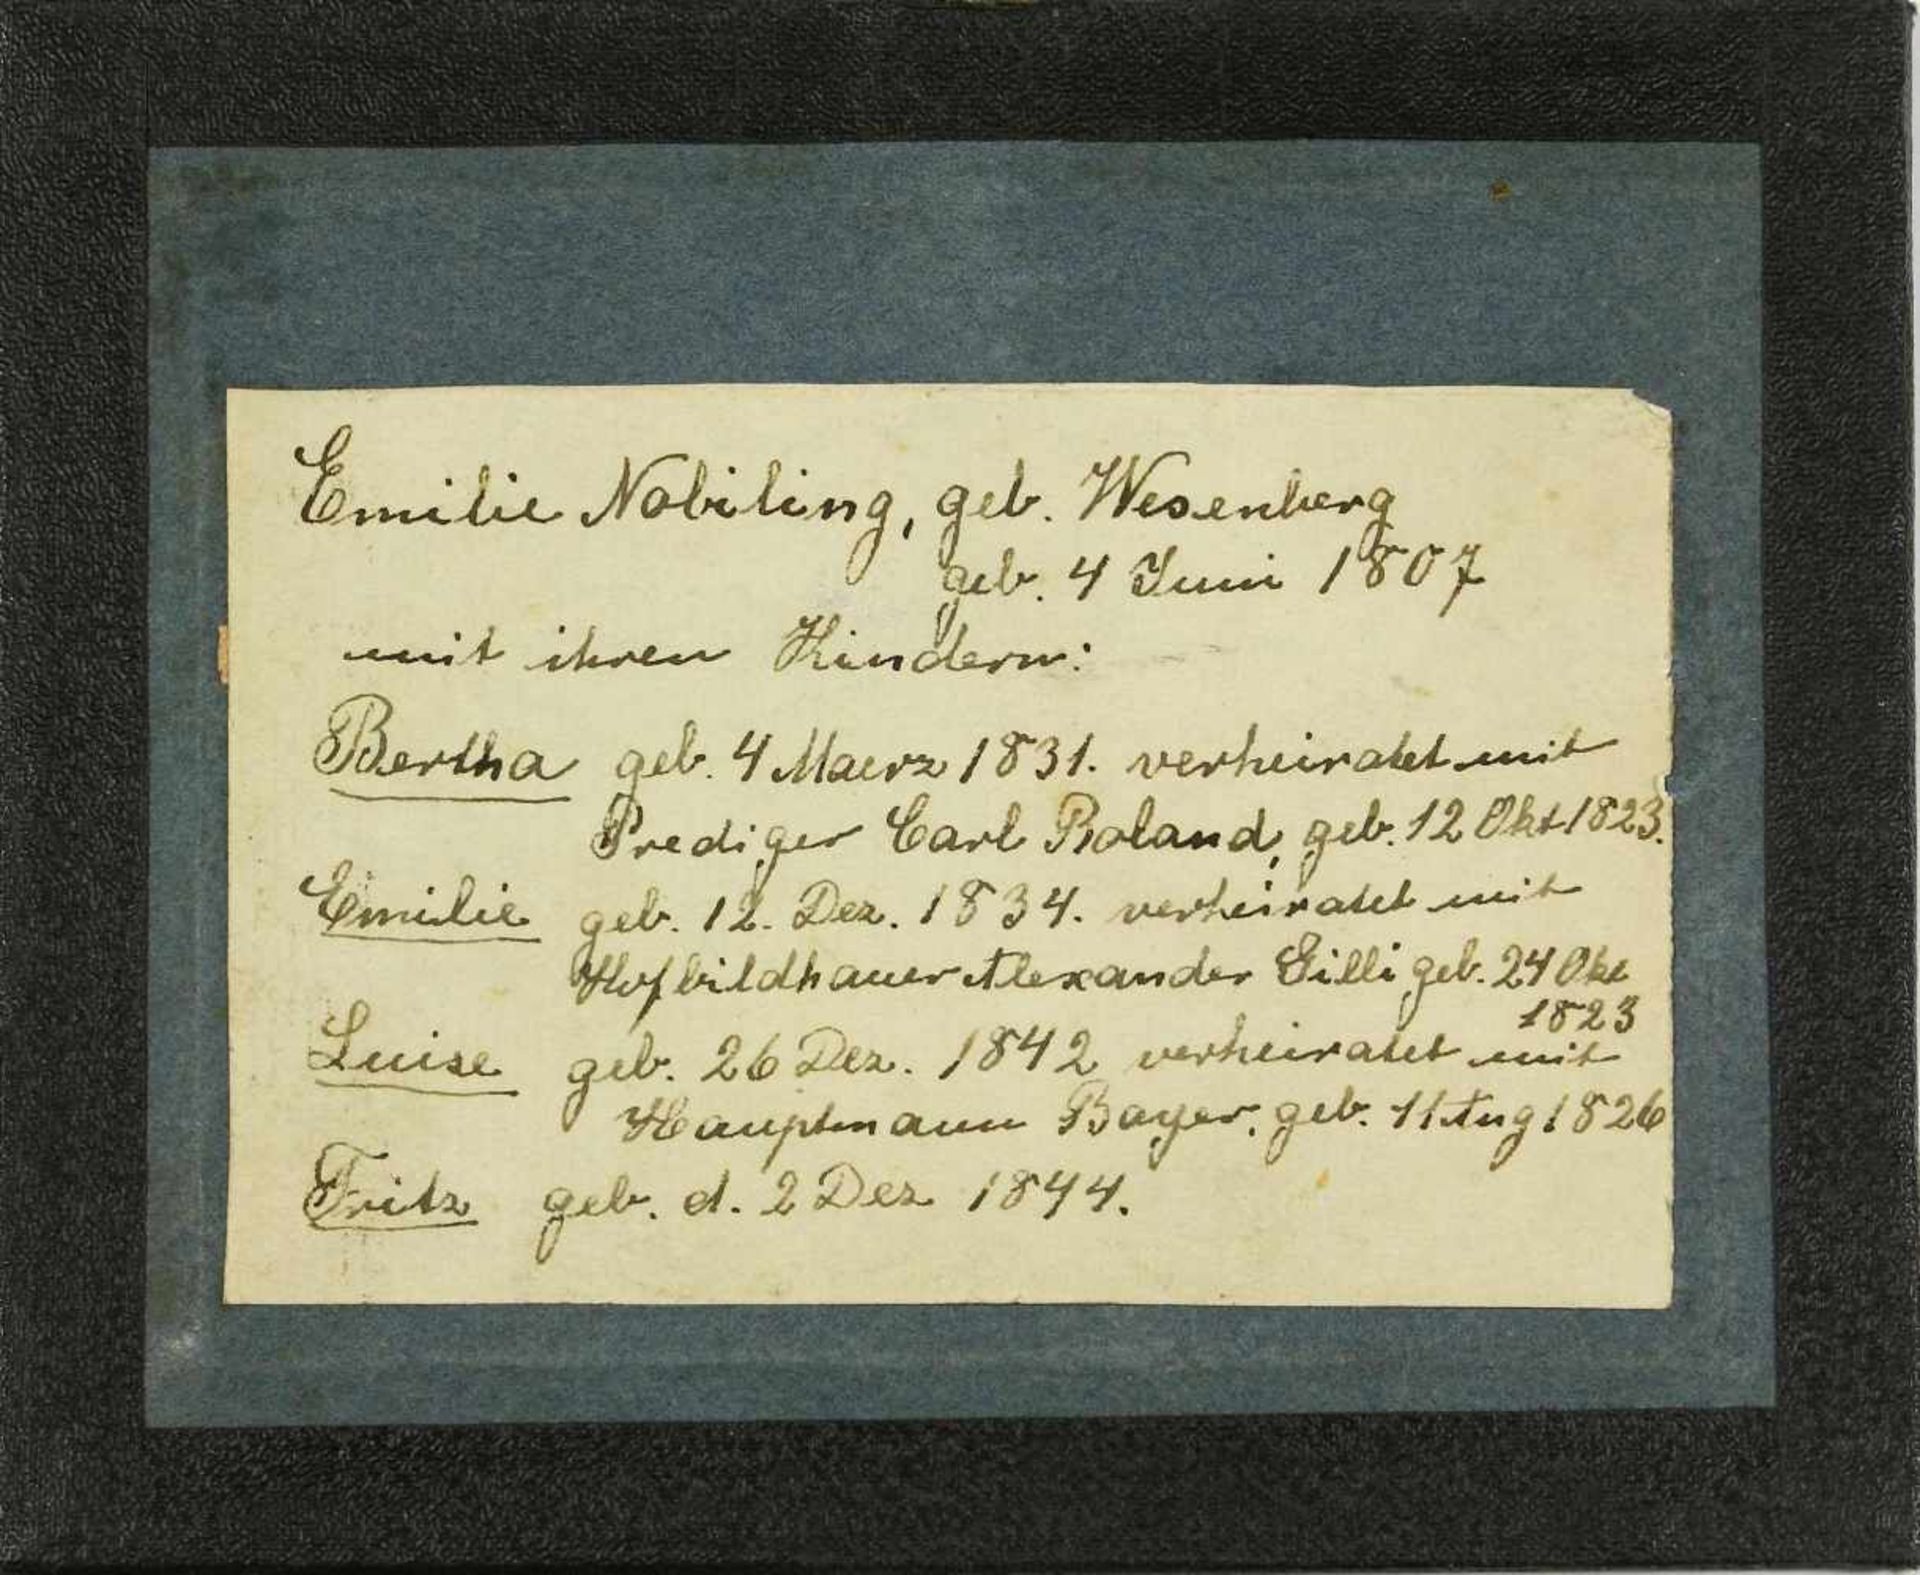 Emilie Nobiling, geb. Wesenberg
geb. 4 Juni 1807
mit ihren Kindern:
Bertha geb. 4 Maerz 1831. verheiratet mit
Prediger Carl Roland, geb. 12 Okt 1823.
Emilie geb. 12. Dez. 1834. verheiratet mit
Hofbildhauer Alexander Gilli geb. 24 Okt
1823
Luise geb. 26 Dez. 1842 verheiratet mit
Hauptmann Bayer, geb. 11 Aug 1826
Fritz geb. d. 2 Dez 1844.